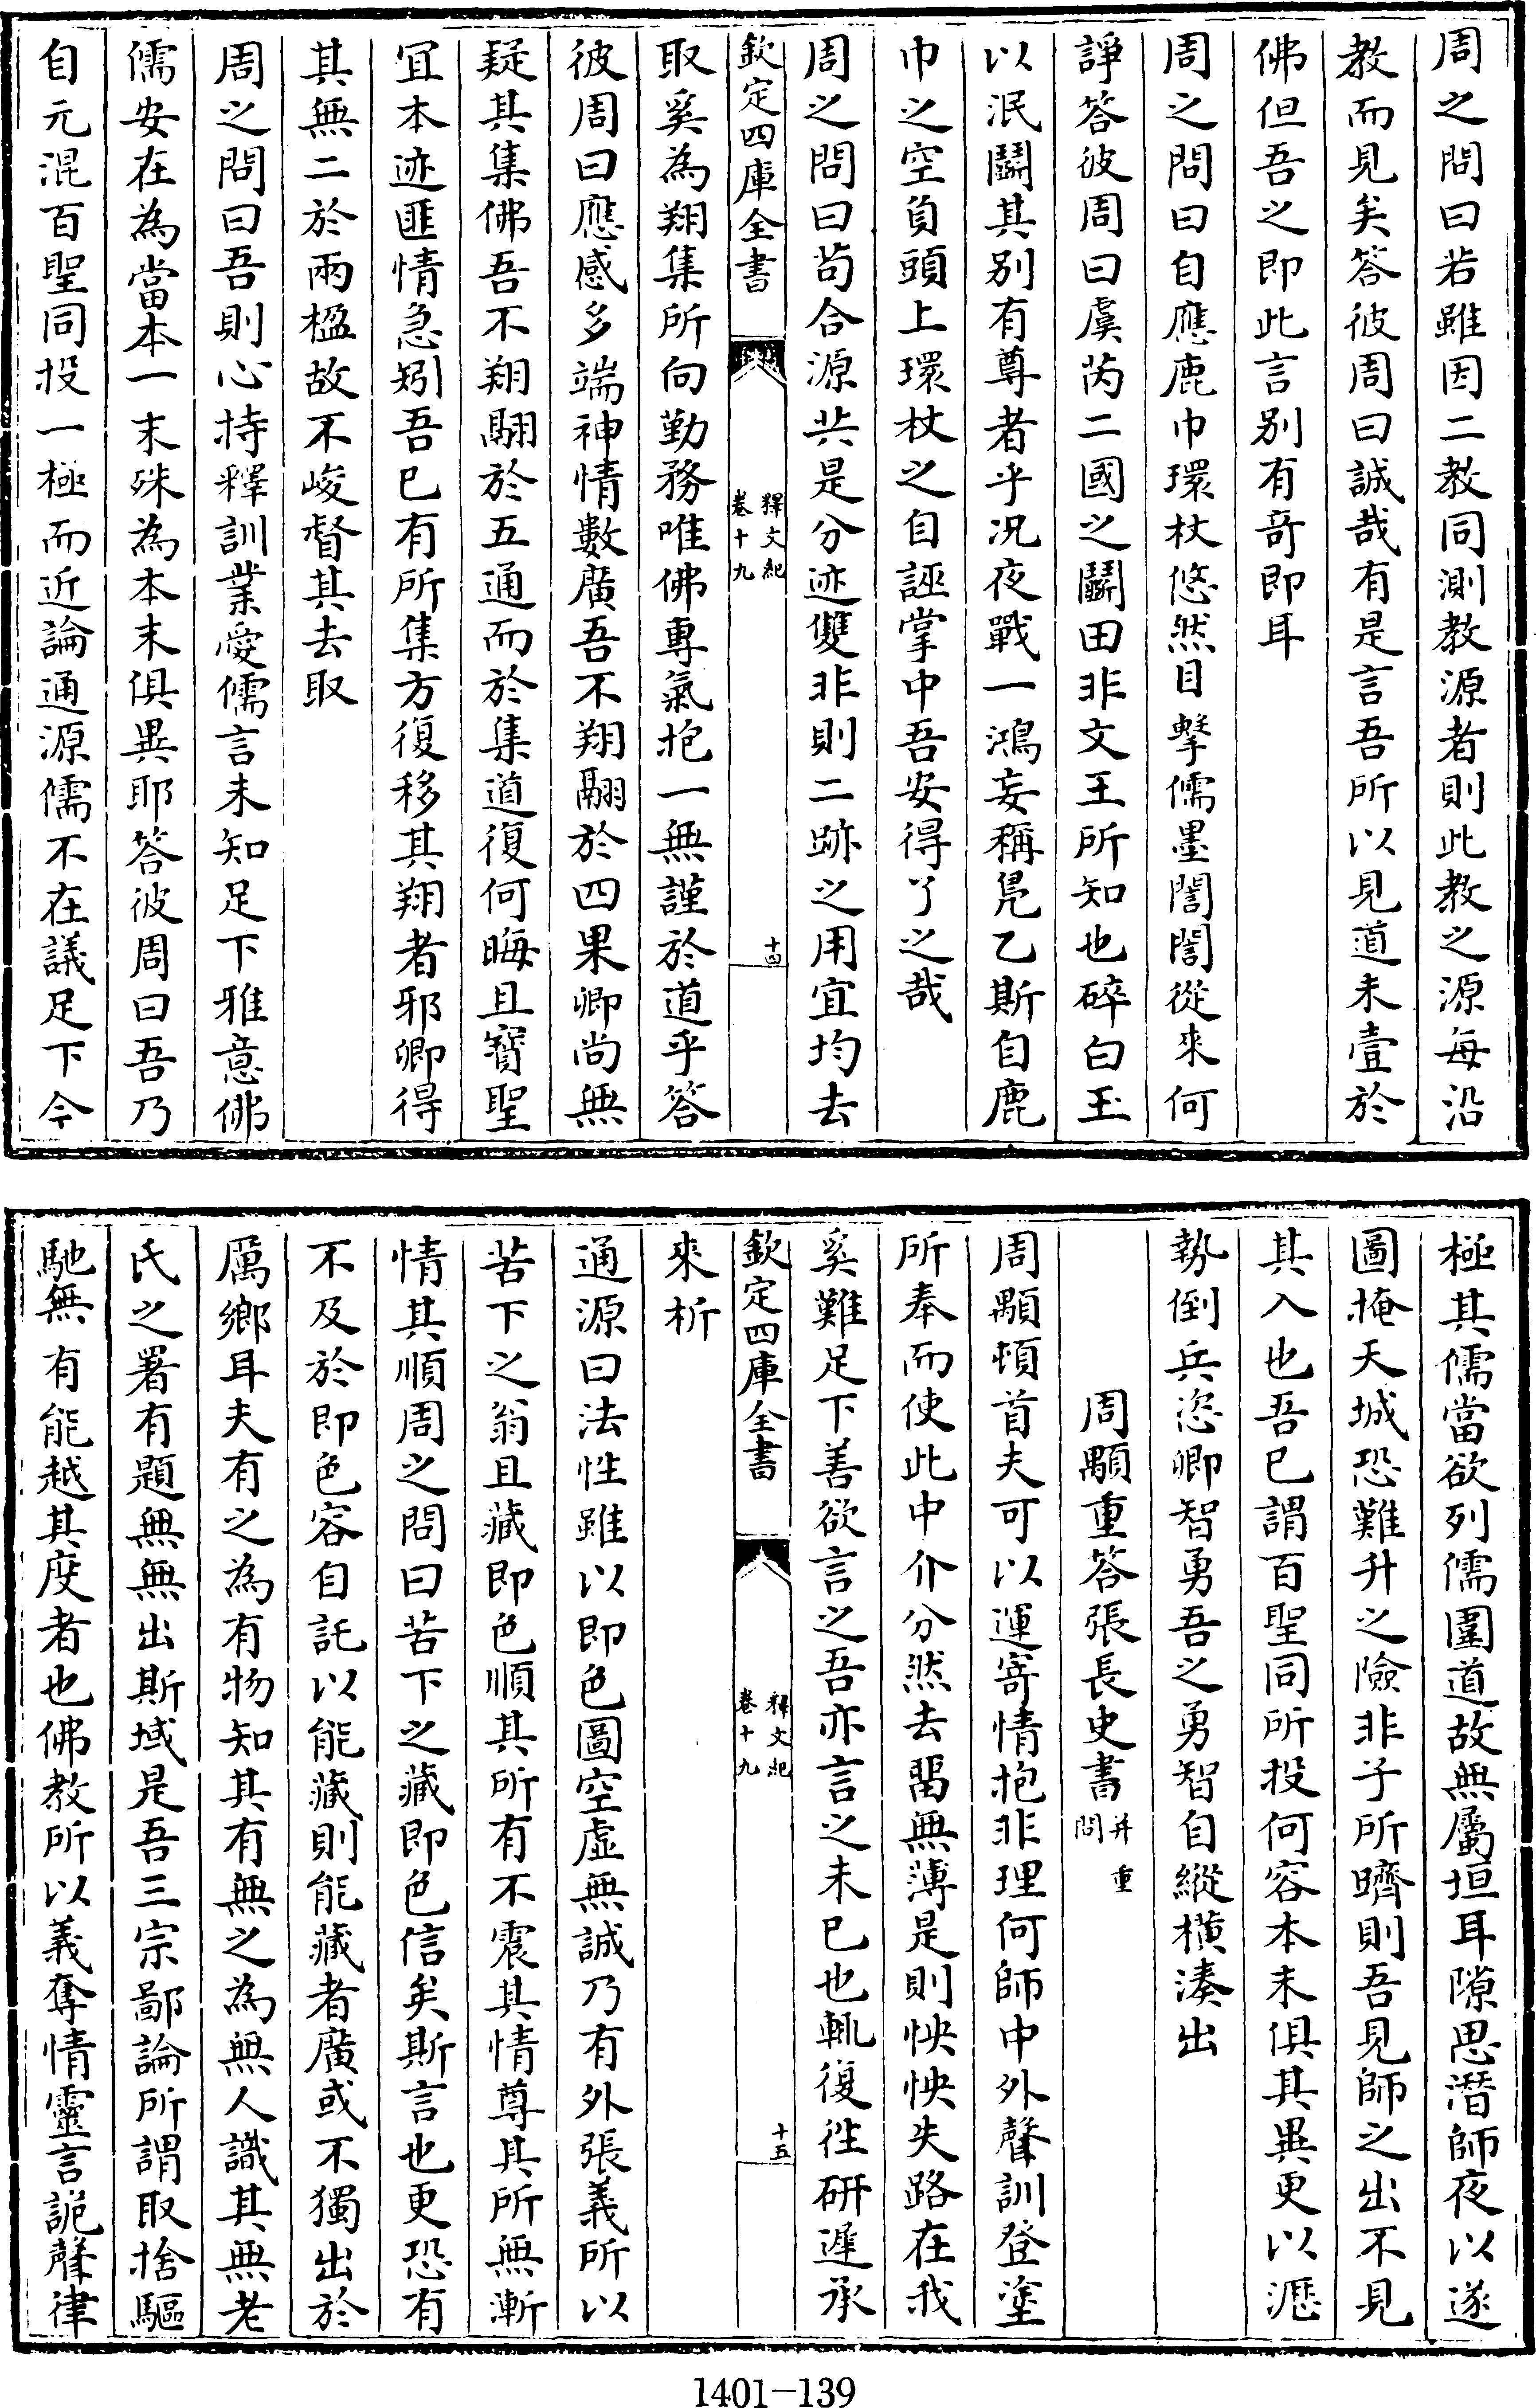 周之問曰若雖因二教同測教源者則此教之源每沿
教而見矣答彼周曰誠哉有是言吾所以見道未壹於
佛但吾之即此言別有奇即耳
周之問曰自應鹿巾環杖悠然目擊儒墨誾誾從來何
諍答彼周曰虞芮二國之鬭田非文王所知也碎白玉
以泯鬭其別有尊者乎况夜戰一鴻妄稱鳧乙斯自鹿
巾之空負頭上環杖之自誣掌中吾安得了之哉
周之問曰茍合源共是分迹雙非則二跡之用宜均去
欽定四庫全書
釋文紀
卷十九
十四
取奚為翔集所向勤務唯佛專氣抱一無謹於道乎答
彼周曰應感多端神情數廣吾不翔翮於四果卿尚無
疑其集佛吾不翔翮於五通而於集道復何晦且寶聖
宜本迹匪情急矧吾已有所集方復移其翔者邪卿得
其無二於兩楹故不峻督其去取
周之問曰吾則心持釋訓業愛儒言未知足下雅意佛
儒安在為當本一末殊為本末俱異耶答彼周曰吾乃
自元混百聖同投一極而近論通源儒不在議足下今
極其儒當欲列儒圍道故無屬垣耳隙思潛師夜以遂
圖掩天城恐難升之險非子所躋則吾見師之出不見
其入也吾已謂百聖同所投何容本末俱其異更以瀝
勢倒兵恣卿智勇吾之勇智自縱横湊出
周顒重答張長史書并重問
周顒頓首夫可以運寄情抱非理何師中外聲訓登塗
所奉而使此中介分然去留無薄是則怏怏失路在我
奚難足下善欲言之吾亦言之未已也輒復往研遲承
欽定四庫全書
釋文紀
卷十九
十五
來析
通源曰法性雖以即色圖空虛無誠乃有外張義所以
苦下之翁且藏即色順其所有不震其情尊其所無漸
情其順周之問曰苦下之藏即色信矣斯言也更恐有
不及於即色容自託以能藏則能藏者廣或不獨出於
厲鄉耳夫有之為有物知其有無之為無人識其無老
氏之署有題無無出斯域是吾三宗鄙論所謂取捨驅
馳無有能越其度者也佛教所以義奪情靈言詭聲律
1401-139